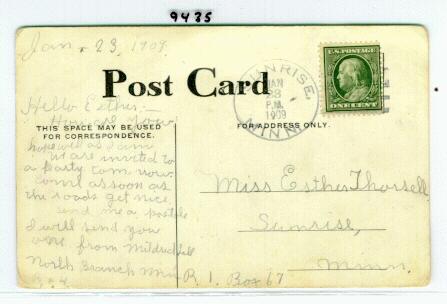 9435
Jan. 23, 1909.
U.S. POSTAGE
ONE CENT
SUNRISE,
JAN
23
P.M.
1909
MINN.
Post Card
Hello Esther:—
How are you
THIS SPACE MAY BE USED
FOR CORRESPONDENCE.
FOR ADDRESS ONLY.
hope well as I am
We are invited to
a party tom now.
Come as soon as
the roads get nice
send me a postal
I will send you
one. from Mildred
North Branch Minn R. 1. Box 67
Miss Esther Thorsell
Sunrise,
Minn.